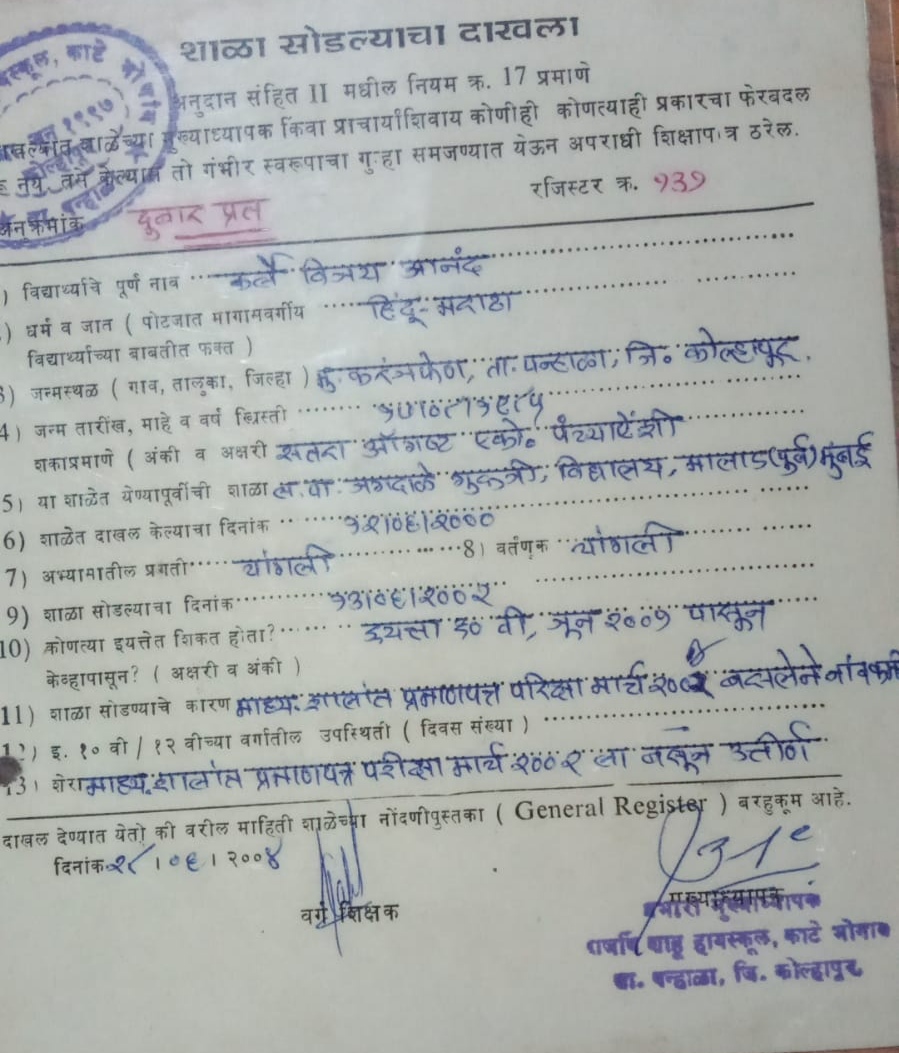 शाळा सोडल्याचा दाखला
अनुदान संहित II मधील नियम क्र. 17 प्रमाणे
शाळेच्या मुख्याध्यापक किंवा प्राचार्याशिवाय कोणीही कोणत्याही प्रकारचा फेरबदल
नये तसे केल्यास तो गंभीर स्वरूपाचा गुन्हा समजण्यात येऊन अपराधी शिक्षापात्र ठरेल.
रजिस्टर क्र. १३१
अनुक्रमांक दुबार प्रत
) विद्यार्थ्याचे पूर्ण नाव कर्ले विजय आनंद
) धर्म व जात ( पोटजात मागासवर्गीय हिंदू-मराठा
विद्यार्थ्याच्या बाबतीत फक्त )
3) जन्मस्थळ ( गाव, तालुका, जिल्हा ) मु. करंजफेण, ता. पन्हाळा, जि. कोल्हापूर.
4) जन्म तारीख, माहे व वर्ष ख्रिस्ती १७।०८।१९८५
शकाप्रमाणे ( अंकी व अक्षरी सतरा ऑगष्ट एको. पंच्याऐंशी
5) या शाळेत येण्यापूर्वीची शाळा विद्यालय, मालाड (पूर्व) मुंबई
6) शाळेत दाखल केल्याचा दिनांक १२।०६।२०००
7) अभ्यासातील प्रगती चांगली 8) वर्तणुक चांगली
9) शाळा सोडल्याचा दिनांक १३।०६।२००२
10) कोणत्या इयत्तेत शिकत होता? इयत्ता १० वी, जून २००१ पासून
केव्हापासून? ( अक्षरी व अंकी )
11) शाळा सोडण्याचे कारण माध्य. शालांत प्रमाणपत्र परिक्षा मार्च २००२ बसलेने नांव कमी
12) इ. १० वी / १२ वीच्या वर्गातील उपस्थिती ( दिवस संख्या )
13) शेरा माध्य. शालांत प्रमाणपत्र परीक्षा मार्च २००२ ला बसून उत्तीर्ण
दाखल देण्यात येतो की वरील माहिती शाळेच्या नोंदणीपुस्तका ( General Register ) बरहुकूम आहे.
दिनांक २८।०६।२००४
वर्ग शिक्षक
मुख्याध्यापक
मुख्याध्यापक
राजर्षि शाहू हायस्कूल, काटे भोगांव
ता. पन्हाळा, जि. कोल्हापूर